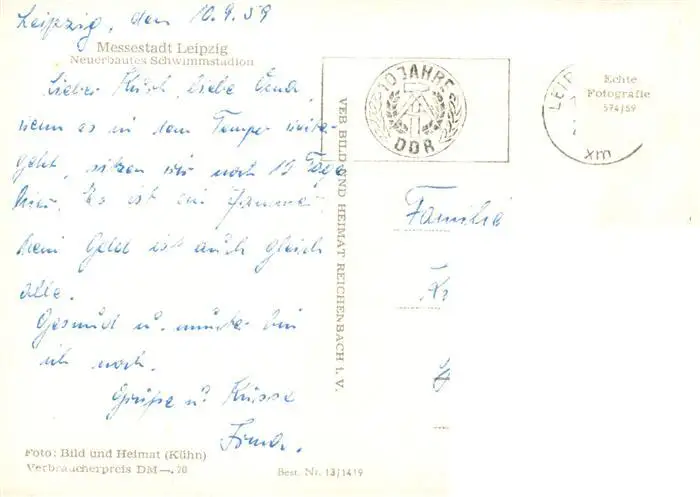 Leipzig, den 10.9.59
Messestadt Leipzig
Neuerbautes Schwimmstadion
Lieber Kurt, liebe Erna,
wenn es in dem Tempo weiter
geht, sitzen wir noch 10 Tage
hier. Es ist ein Jammer
kein Geld ist auch gleich
alle.
Gesund u. munter bin
ich noch.
Grüße u. Küsse
Foto: Bild und Heimat (Kühn)
Verbraucherpreis DM —.20
Best. Nr. 13/1419
VEB BILD UND HEIMAT REICHENBACH i. V.
10 JAHRE
DDR
LEIP
xm
Echte
Fotografie
574/59
Familie
Kr